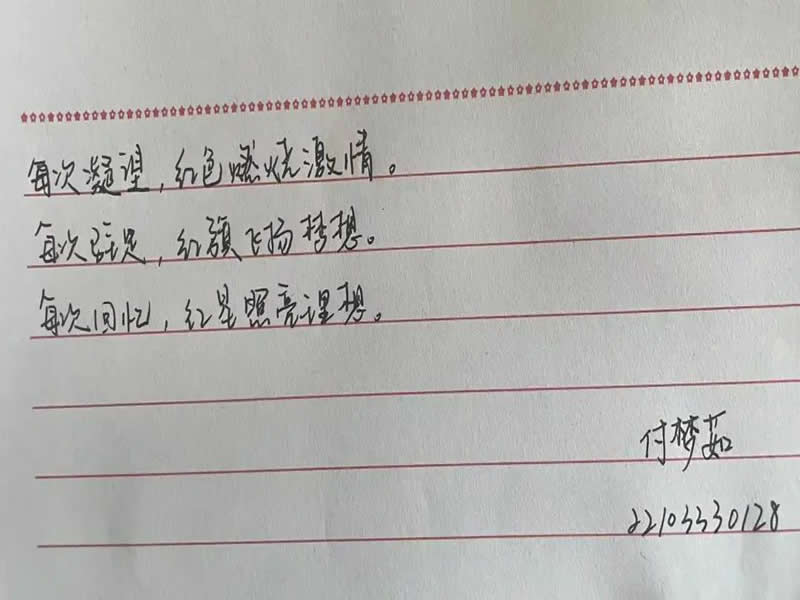 每次凝望，红色燃烧激情。
每次驻足，红旗飞扬梦想。
每次回忆，红星照亮理想。
付梦茹
2210330128